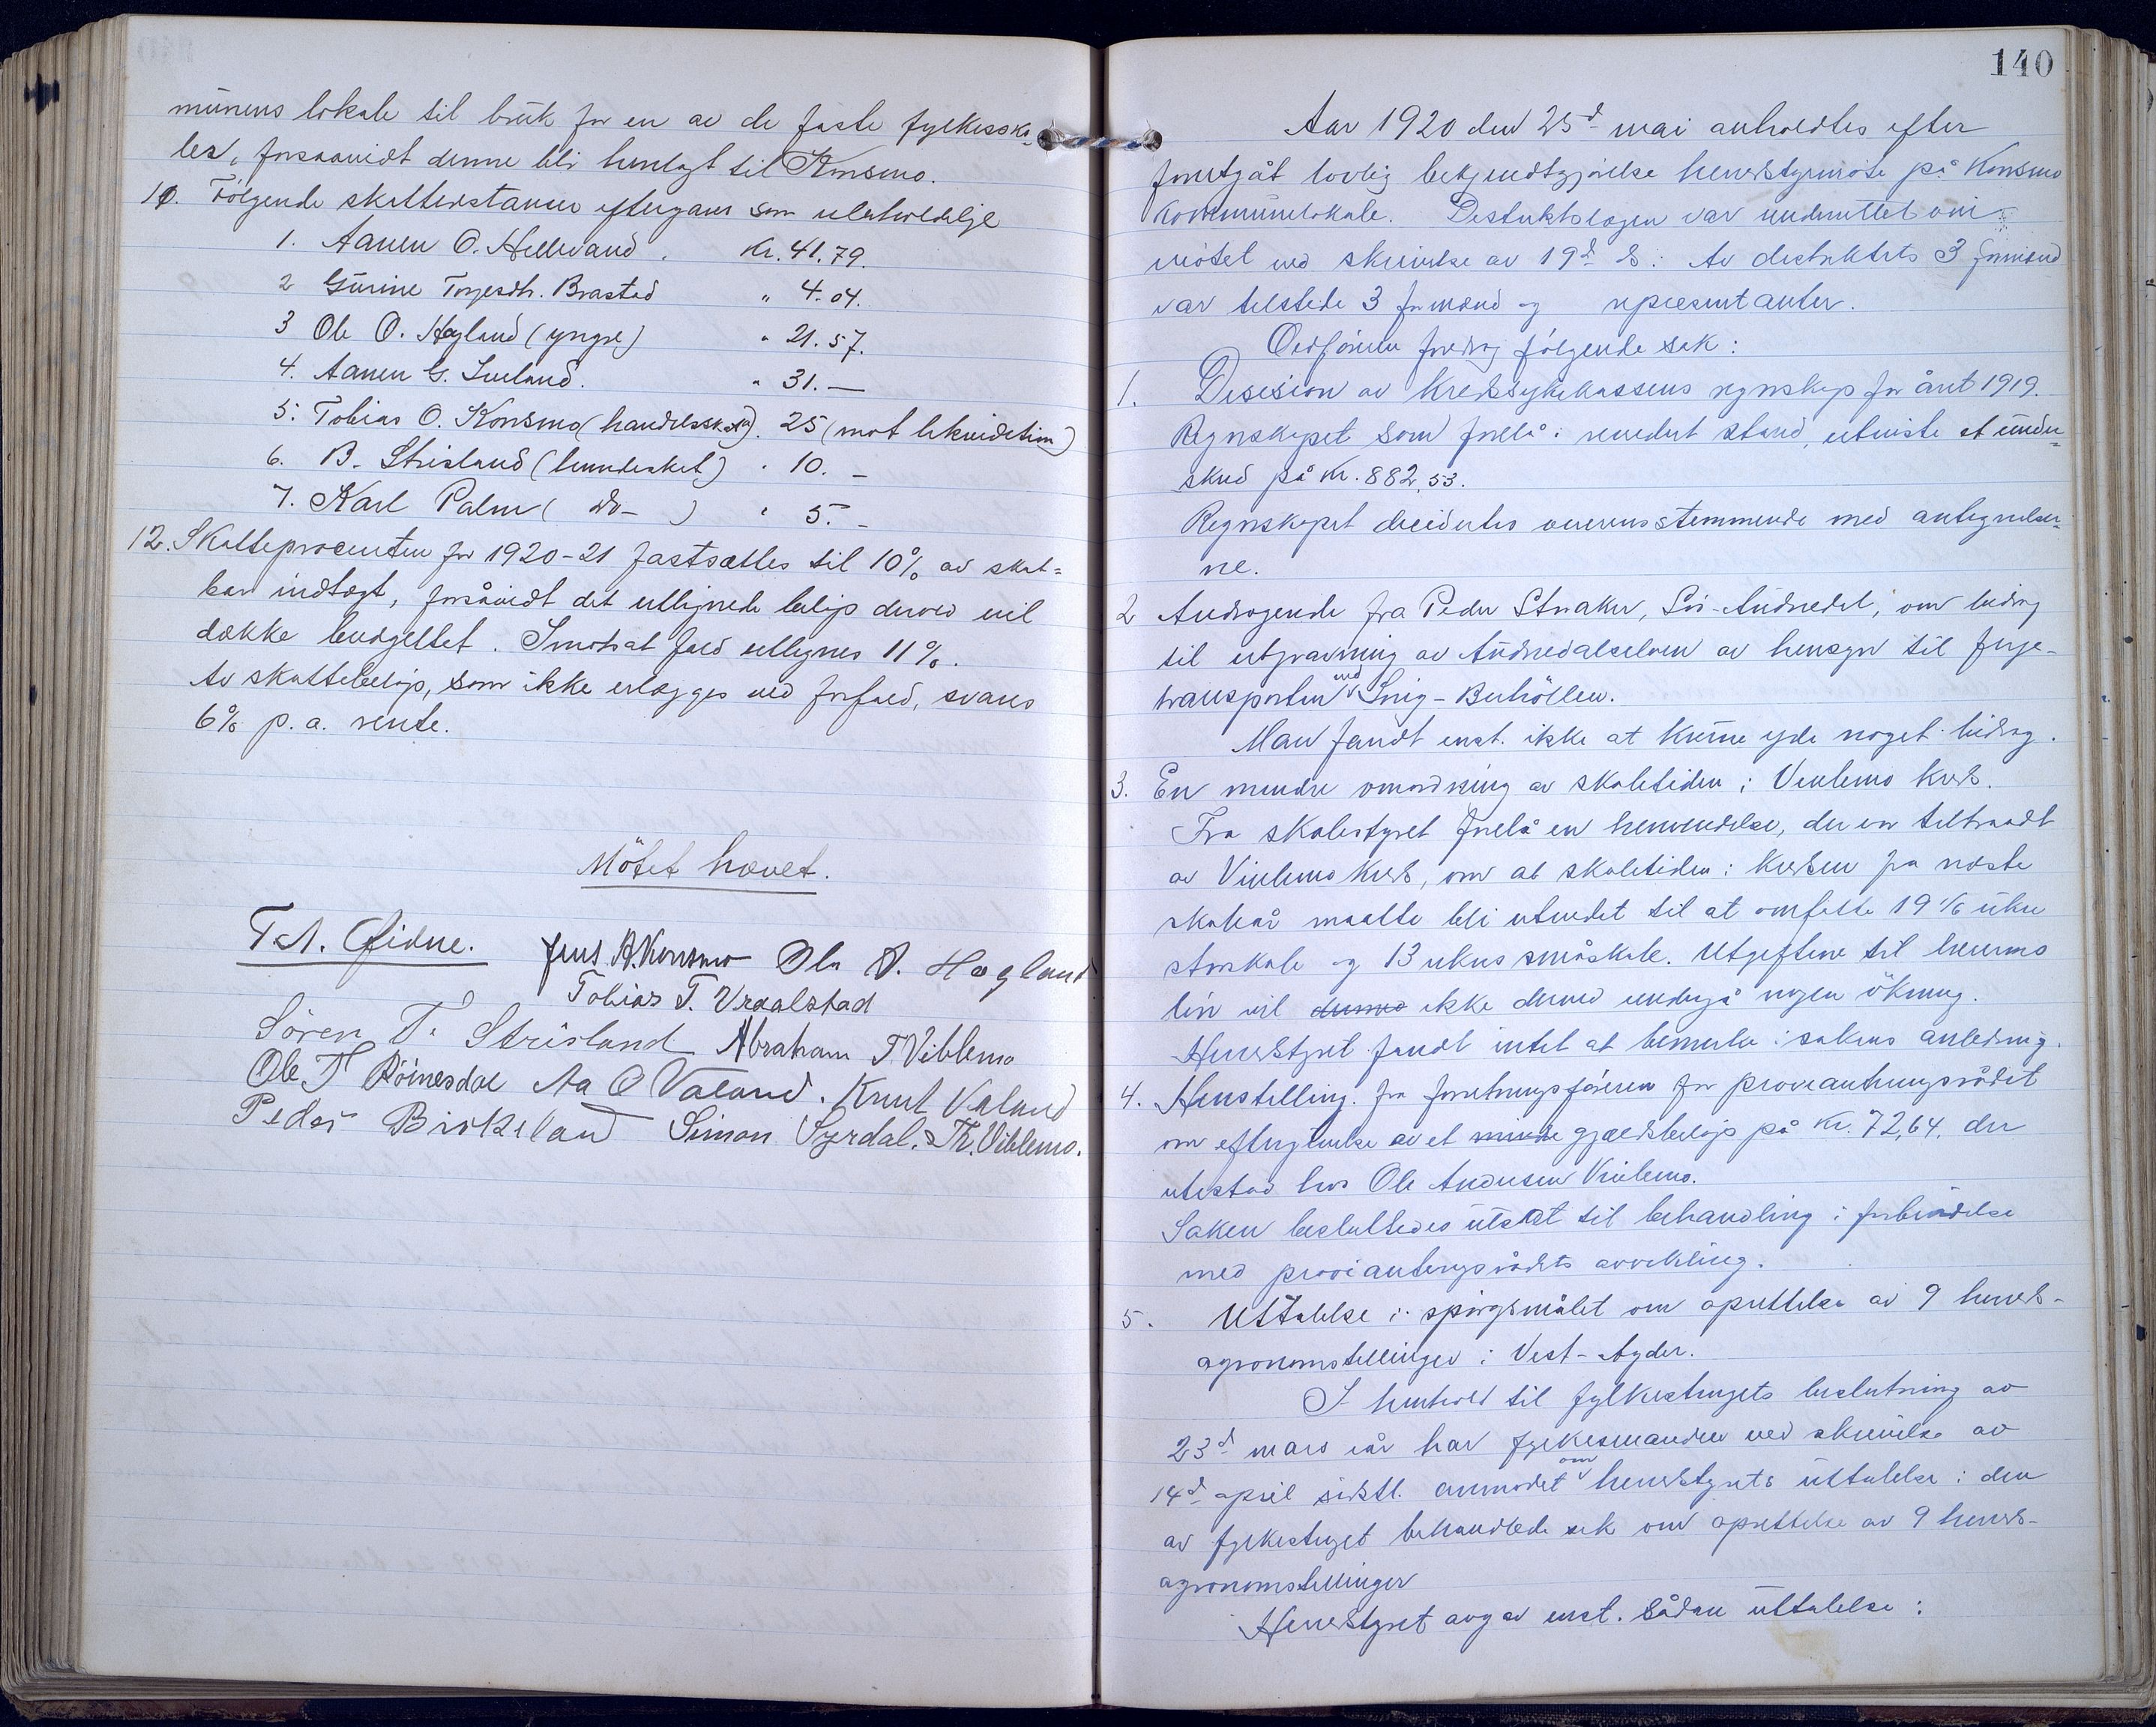 munens lokale til bruk for en av de faste fylkessko-
ler, forsaavidt denne blir henlagt til Konsmo.
11. Følgende skatterestancer eftergaves som uerholdelige
1. Aanen O. Hellevand. Kr. 41.79.
2 Gurine Torjesdtr. Brastad " 4.04.
3 Ole O. Høgland (yngre) " 21.57.
4. Aanen G. Iveland. " 31.—
5. Tobias O. Konsmo (handelsskat). 25 (mot likvidation)
6. B. Strisland (hundeskat) " 10. –
7. Karl Palm ( do– ) " 5. –
12. Skatteprocenten for 1920-21 fastsættes til 10% av skat-
bar indtægt, forsåvidt det utlignede beløp derved vil
dække budgettet. I motsat fald utlignes 11%.
Av skattebeløp, som ikke erlægges ved forfald, svares
6% p. a. rente.
Møtet hævet.
T. A. Eidne. Jens A. Konsmo Ola A. Høgland
Tobias T. Vraalstad
Søren T. Strisland Abraham T Viblemo
Ole T Röinesdal Aa O Valand. Knut Valand
Peder Birkeland Simon Syrdal. Th. Viblemo.
140
Aar 1920 den 25d mai avholdtes efter
foretgåt lovlig bekjendtgjørelse herredsstyremøte på Konsmo
kommunelokale. Distriktslægen var underrettet om
møtet ved skrivelse av 19d ds. Av distriktets 3 formænd
var tilstede 3 formænd og repræsentanter.
Ordføreren foredrog følgende sak:
1. Desision av kredssykekassens regnskap for året 1919.
Regnskapet som forelå i revidert stand, utviste et under-
skud på Kr. 882,53.
Regnskapet decidertes overensstemmende med antegnelser-
ne.
2 Andragende fra Peder Straker, Sør-Audnedal, om bidrag
til utgravning av Audnedalselven av hensyn til ferge-
transporten ved Snig - Buhöllen.
Man fandt enst. ikke at kunne yde noget bidrag.
3. En mindre omordning av skoletiden i Viblemo kreds.
Fra skolestyret forelå en henvendelse, der var tiltraadt
av Viblemo kreds, om at skoletiden i kredsen for næste
skoleår maatte bli utvidet til at omfatte 19 1/6 uker
storskole og 13 ukers småskole. Utgiftene til lærerens
løn vil derved ikke derved undergå nogen økning.
Herredsstyret fandt intet at bemerke i sakens anledning.
4. Henstilling fra forretningsføreren for provianteringsrådet
om eftergivelse av et mindre gjældsbeløp på Kr. 72,64, der
utestod hos Ole Andersen Viblemo.
Saken besluttedes utsat til behandling i forbindelse
med provianteringsrådets avvikling.
5. Uttalelse i spørgsmålet om oprettelse av 9 herreds-
agronomstillinger i Vest-Agder.
I henhold til fylkestingets beslutning av
23d mars iår har fylkesmanden ved skrivelse av
14d april sidstl. anmodet om herredsstyrets uttalelse i den
av fylkestinget behandlede sak om oprettelse av 9 herreds-
agronomstillinger
Herredsstyret avgav enst. sådan uttalelse: